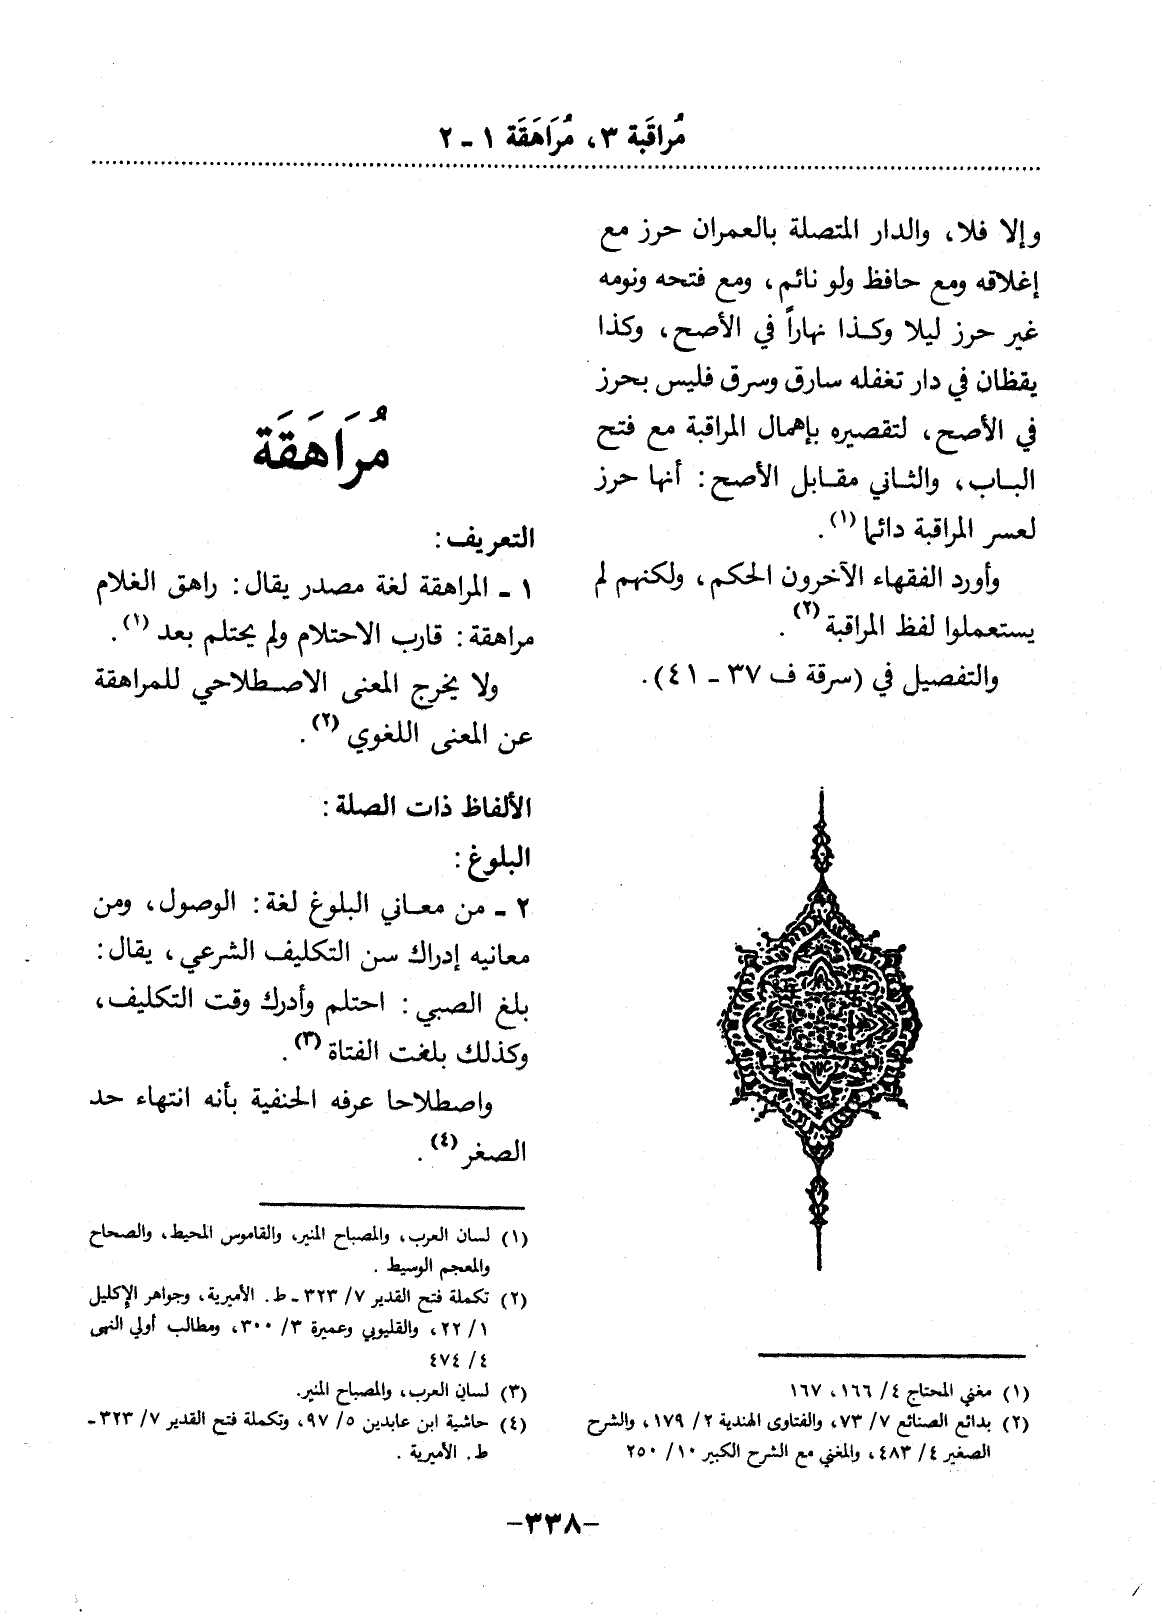 مُراقَبة ٣، مُرَاهَقَة ١ ـ ٢
وإلا فلا، والدار المتصلة بالعمران حرز مع
إغلاقه ومع حافظ ولو نائم، ومع فتحه ونومه
غير حرز ليلا وكـذا نهاراً في الأصح، وكذا
يقظان في دار تغفله سارق وسرق فليس بحرز
في الأصح، لتقصيره بإهمال المراقبة مع فتح
البـاب، والثـاني مقـابل الأصح: أنها حرز
لعسر المراقبة دائما (١).
وأورد الفقهاء الآخرون الحكم، ولكنهم لم
يستعملوا لفظ المراقبة (٢).
والتفصيل في (سرقة ف ٣٧ ـ ٤١).
(١) مغني المحتاج ٤/ ١٦٦، ١٦٧
(٢) بدائع الصنائع ٧/ ٧٣، والفتاوى الهندية ٢/ ١٧٩، والشرح
الصغير ٤/ ٤٨٣، والمغني مع الشرح الكبير ١٠/ ٢٥٠
مُرَاهَقَة
التعريف:
١ ـ المراهقة لغة مصدر يقال: راهق الغلام
مراهقة: قارب الاحتلام ولم يحتلم بعد (١).
ولا يخرج المعنى الاصـطلاحي للمراهقة
عن المعنى اللغوي (٢).
الألفاظ ذات الصلة:
البلوغ:
٢ ـ من معـاني البلوغ لغة: الوصول، ومن
معانيه إدراك سن التكليف الشرعي، يقال:
بلغ الصبي: احتلم وأدرك وقت التكليف،
وكذلك بلغت الفتاة (٣).
واصطلاحا عرفه الحنفية بأنه انتهاء حد
الصغر (٤).
(١) لسان العرب، والمصباح المنير، والقاموس المحيط، والصحاح
والمعجم الوسيط.
(٢) تكملة فتح القدير ٧/ ٣٢٣ ـ ط. الأميرية، وجواهر الإكليل
١/ ٢٢، والقليوبي وعميرة ٣/ ٣٠٠، ومطالب أولي النهى
٤/ ٤٧٤
(٣) لسان العرب، والمصباح المنير.
(٤) حاشية ابن عابدين ٥/ ٩٧، وتكملة فتح القدير ٧/ ٣٢٣ ـ
ط. الأميرية.
-٣٣٨-